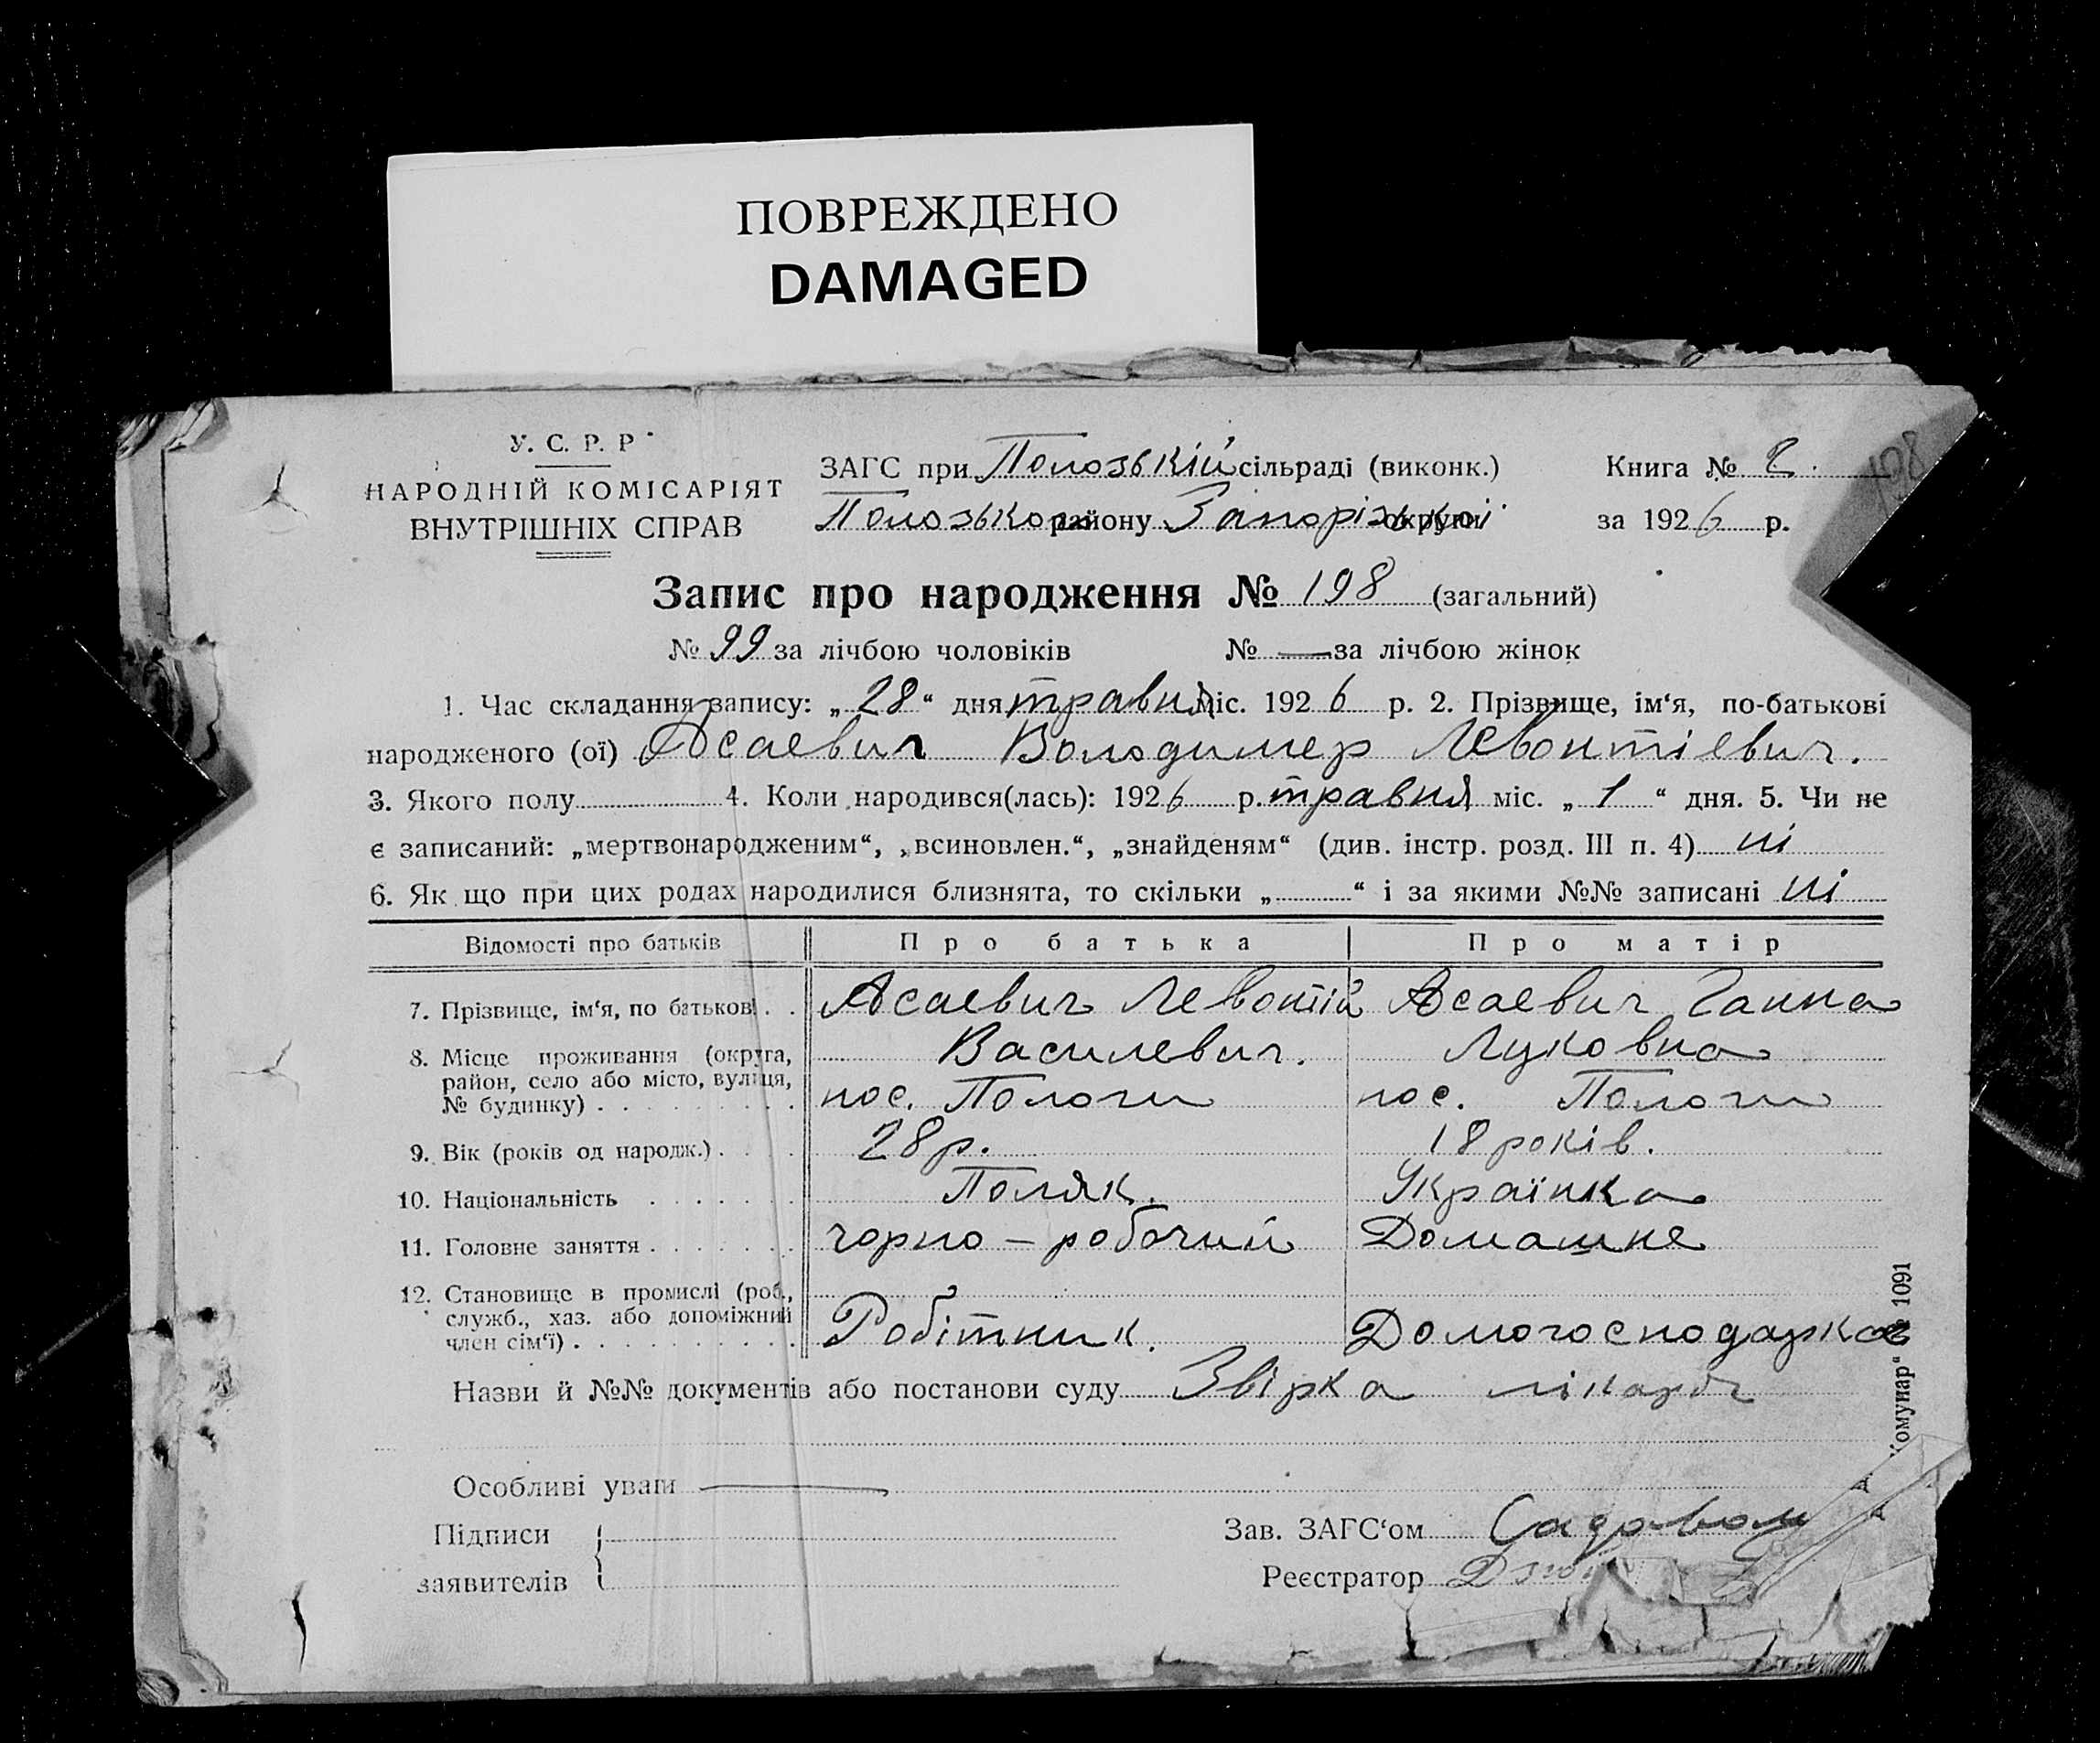 ПОВРЕЖДЕНО
DAMAGED
У. С. Р. Р.
НАРОДНІЙ КОМІСАРІЯТ
ВНУТРІШНІХ СПРАВ
ЗАГС при Полозькій сільраді (виконк.)
Полозького району Запорізької округи
Книга № 2.
за 1926 р.
198
Запис про народження № 198 (загальний)
№ 99 за лічбою чоловіків № — за лічбою жінок
1. Час складання запису: „28“ дня травня міс. 1926 р. 2. Прізвище, ім‘я, по-батькові
народженого (ої) Асаевич Володимер Левонтіевич.
3. Якого полу 4. Коли народився(лась): 1926 р. травня міс. „1“ дня. 5. Чи не
є записаний: „мертвонародженим“, „всиновлен.“, „знайденям“ (див. інстр. розд. III п. 4) ні
6. Як що при цих родах народилися близнята, то скільки „ “ і за якими №№ записані ні
Відомості про батьків Про батька Про матір
7. Прізвище, ім‘я, по батькові . . Асаевич Левонтій Асаевич Ганна
Василевич. Луковна
8. Місце проживання (округа,
район, село або місто, вулиця,
№ будинку) . . . . . . . . . пос. Пологи пос. Пологи
9. Вік (років од народж.) . . . . 28 р. 18 років.
10. Національність . . . . . . . Поляк. Українка
11. Головне заняття . . . . . . . чорно-робочий Домашне
12. Становище в промислі (роб.,
служб., хаз. або допоміжний
член сім‘ї) . . . . . . . . . . Робітник. Домогосподарка
Назви й №№ документів або постанови суду Звірка лікаря
Особливі уваги —
Підписи
заявителів
Зав. ЗАГС‘ом
Реєстратор
Комунар“ 1091